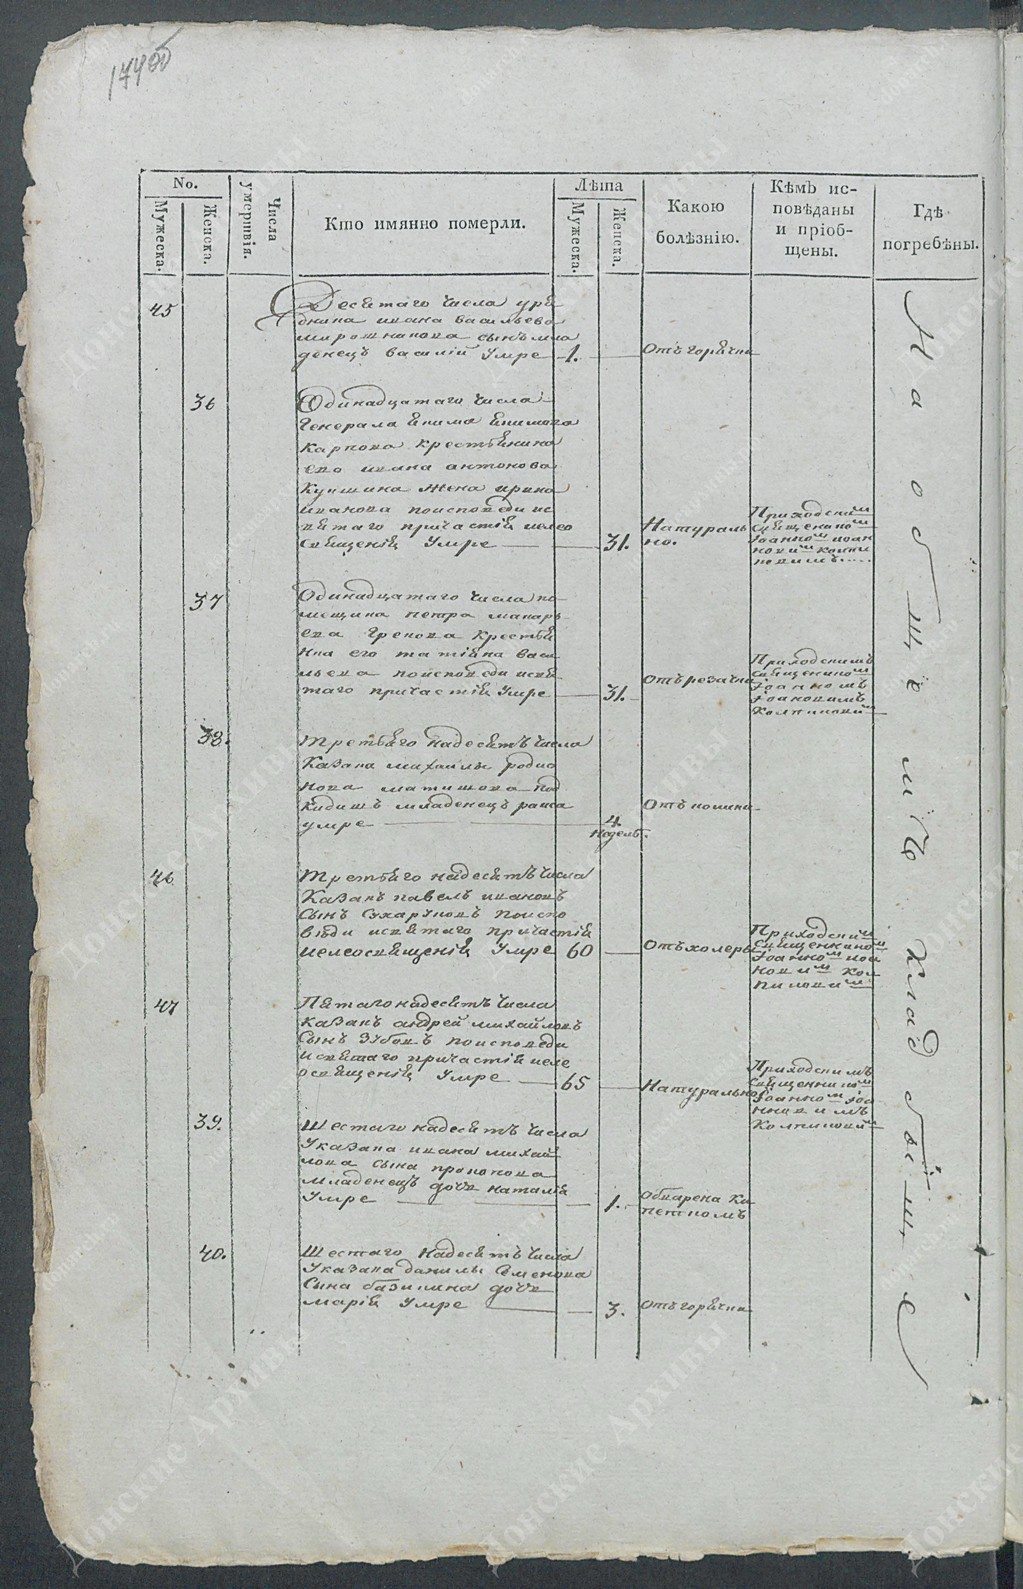 174об
No.
Мужеска.
Женска.
Числа умертвiя.
Кто имянно померли.
Лѣта
Мужеска.
Женска.
Какою
болѣзнiю.
Кѣмъ ис-
повѣданы
и прiоб-
щены.
Гдѣ
погребены.
45
Десятаго числа уря
дника ивана васильева
мирошникова сынъ мла
денецъ василiй умре 1.
Отъ горячки
36
Одинадцатаго числа
генерала Екима Екимова
Карпова крестьянина
его ивана антонова
жена ирина
иванова поисповеди ис
вятаго причастiя иелео
священiя умре 31.
Натураль
но.
Приходским
священником
Iоанном иоан
новим колпи
ковимъ
37
Одинадцатаго числа по
мещика петра макарь
ева грекова крестья
нка его татiяна васи
льева поисповеди исвя
таго причастiя умре 31.
Отъ резачки
Приходскимъ
священником
Iоаномъ
Iоановимъ
38.
Третьяго надесять числа
Казака михайлы родио
нова матишова под
кидишъ младенецъ раиса
умре 4.
недель.
46
Третьяго надесять числа
Казакъ павелъ ивановъ
сынъ сухаруковъ поиспо
вѣди исвятаго причастiя
иелеосвященiя умре 60
Отъ холеры
Приходским
священником
Iоанном иоан
новим кол
пиковим
47
Пятагонадесять числа
казакъ андрей михайловъ
сынъ зубовъ поисповеди
исвятаго причастiя иеле
освященiя умре 65
Натурально
Приходскимъ
священником
Iоанном Iоа
нновимъ
39.
Шестагонадесять числа
Указака ивана михай
лова сына прокопова
младенецъ дочь наталiя
умре 1.
Обварена ки
петкомъ
40.
Шестаго надесять числа
Указака данилы Семенова
сына дочь
марiя умре 3.
Отъ горячки
На общемъ кладбѣще